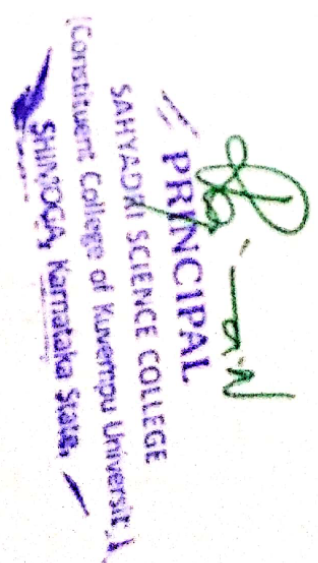 PRINCIPAL
SAHYADRI SCIENCE COLLEGE
(Constituent College of Kuvempu University)
SHIMOGA, Karnataka State,